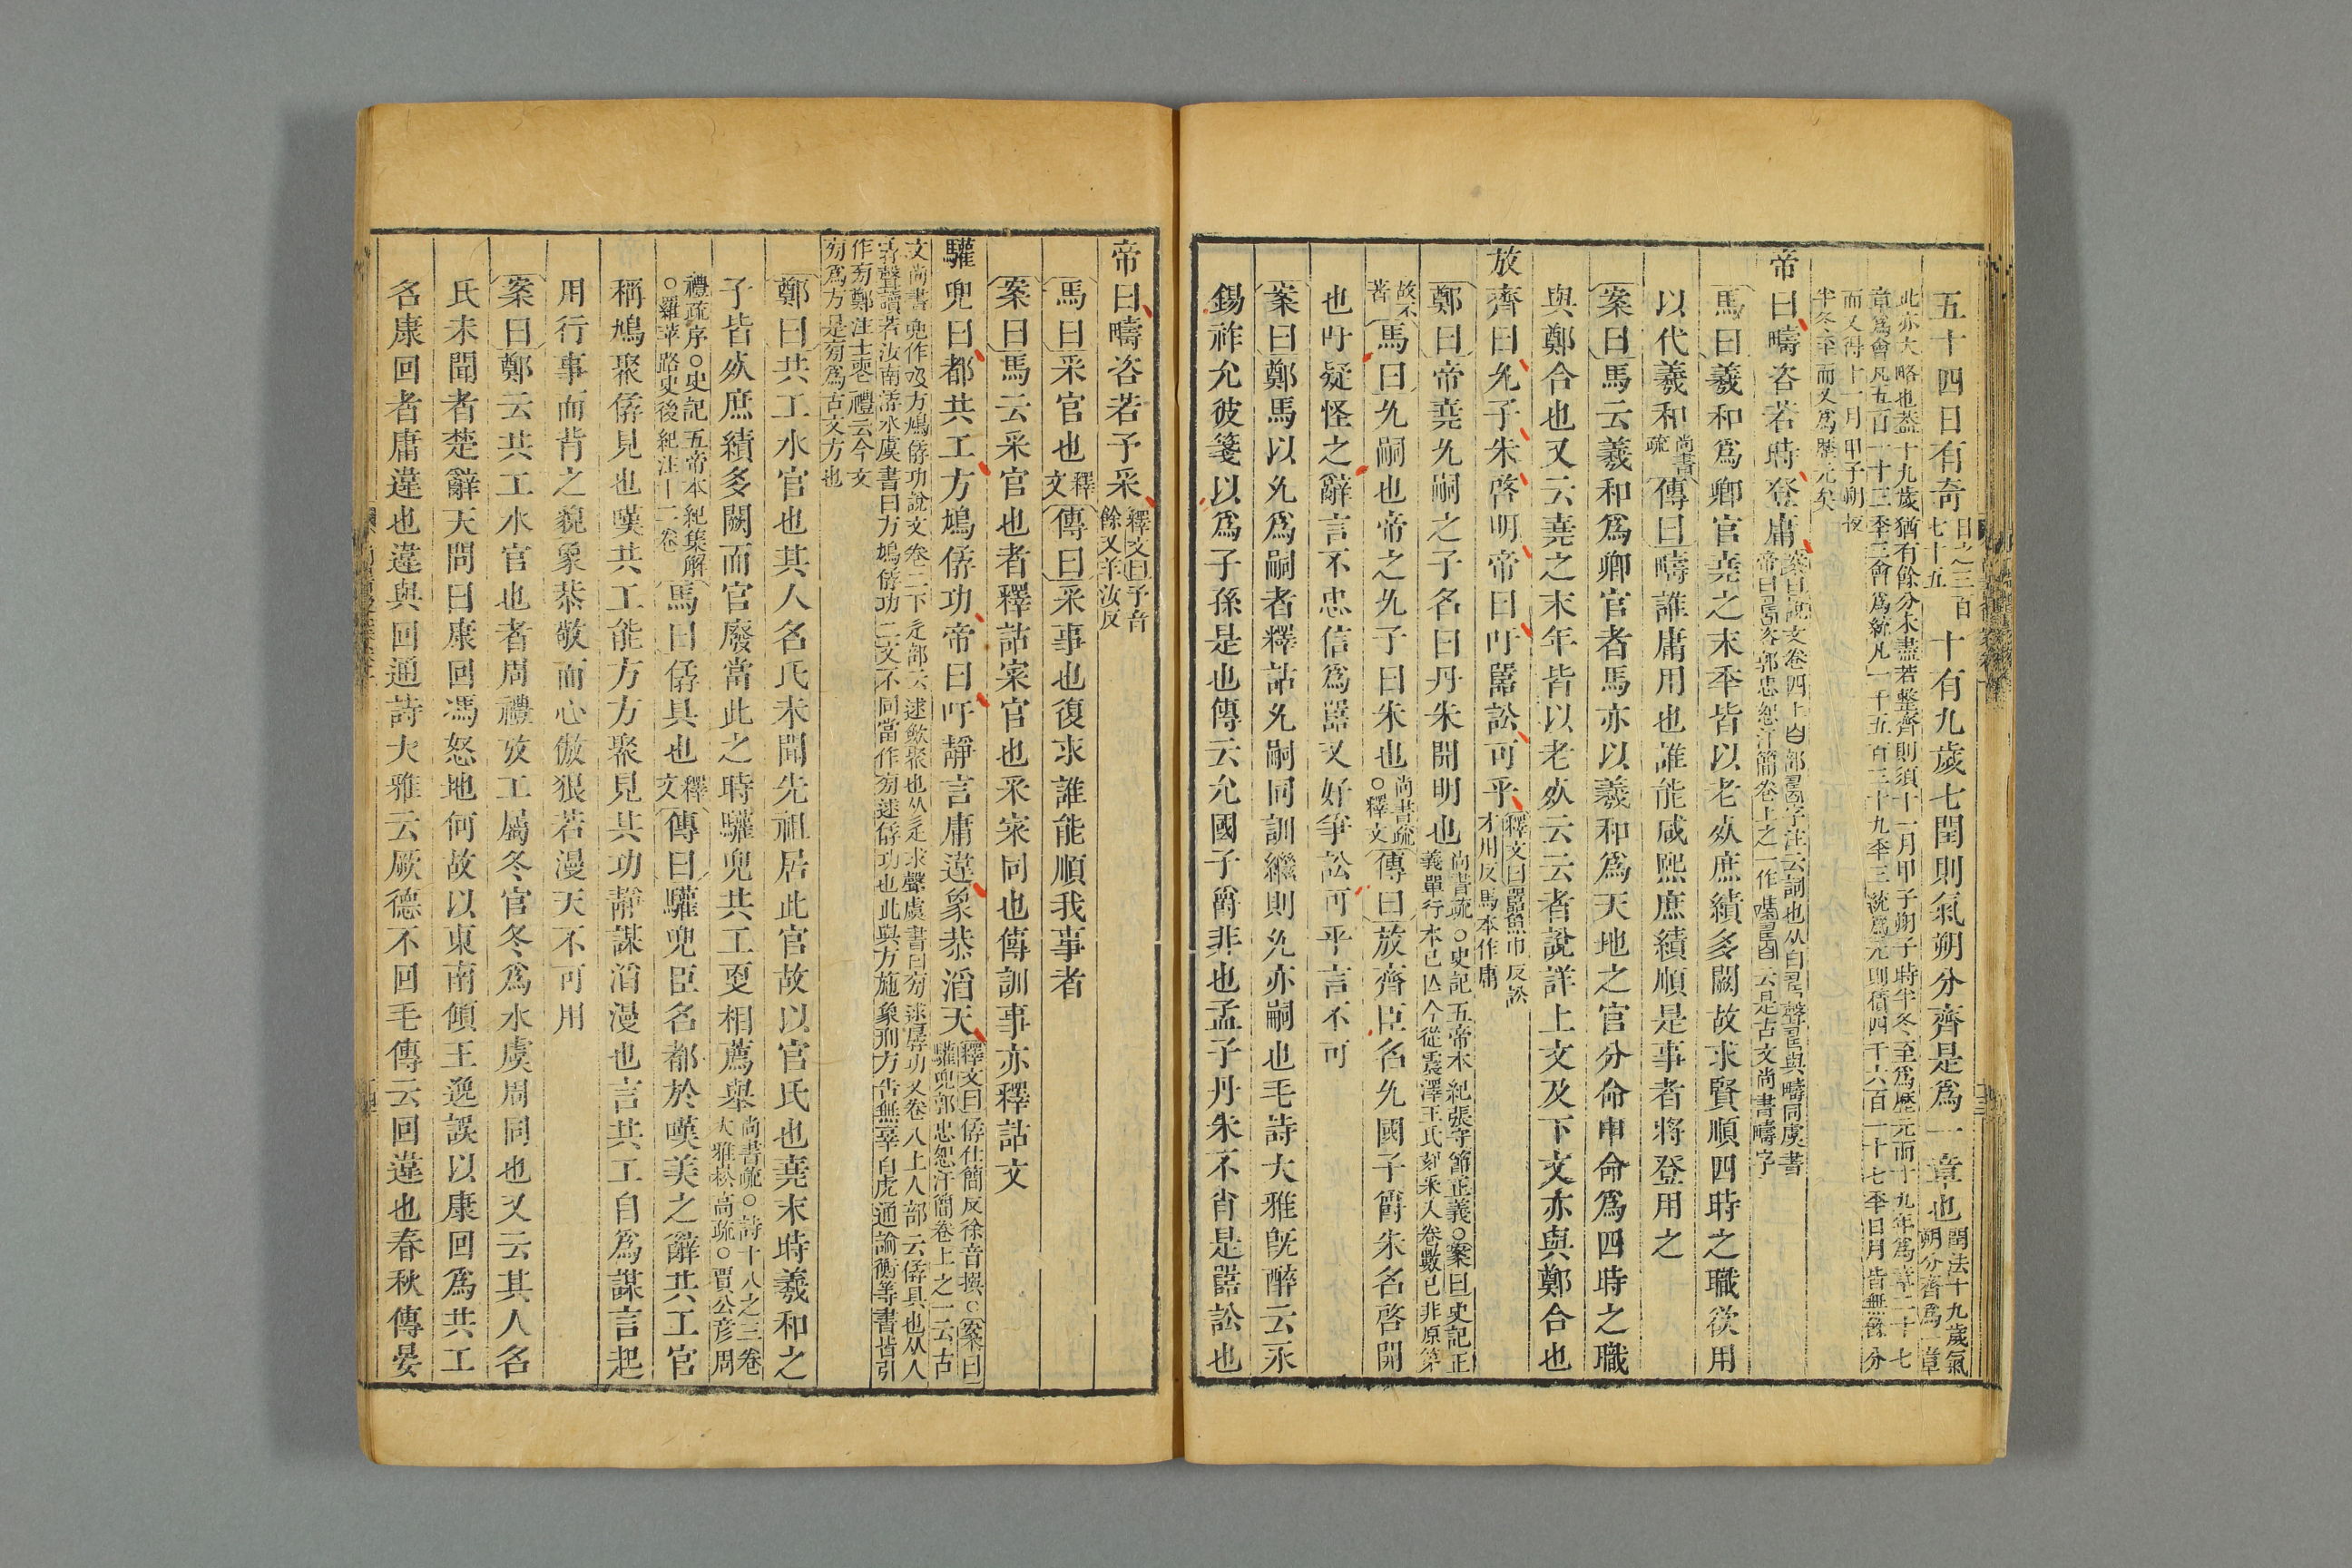 五十四日有奇日之三百七十五十有九歲七閏則氣朔分齊是爲一章也閏法十九歲氣朔分齊爲一章
此亦大略也葢十九歲猶有餘分未盡若整齊則須十一月甲子朔子時半冬至爲歷元而十九年爲章二十七
章爲會凡五百一十三季三會爲統凡一千五百三十九季三統爲元則積四千六百一十七季日月皆無餘分
而又得十一月甲子朔夜
半冬至而又爲歷元矣
帝曰疇咨若時登庸
馬曰羲和爲卿官堯之末秊皆以老𣦸庶績多闕故求賢順四時之職欲用
以代羲和尚書疏傳曰疇誰庸用也誰能咸熙庶績順是事者將登用之
案曰馬云羲和爲卿官者馬亦以羲和爲天地之官分命申命爲四時之職
與鄭合也又云堯之末年皆以老𣦸云云者說詳上文及下文亦與鄭合也
放齊曰允子朱啓明帝曰吁嚚訟可乎釋文曰嚚魚巾反訟才用反馬本作庸
鄭曰帝堯允嗣之子名曰丹朱開明也尚書疏○史記五帝本紀張守節正義○案曰史記正義單行本已亾今從震澤王氏刻釆入卷數已非原第
故不著馬曰允嗣也帝之允子曰朱也尚書疏○釋文傳曰放齊臣名允國子爵朱名啓開
也吁疑怪之辭言不忠信爲嚚又好爭訟可乎言不可
案曰鄭馬以允爲嗣者釋詁允嗣同訓繼則允亦嗣也毛詩大雅旣醉云永
錫祚允彼箋以爲子孫是也傳云允國子爵非也孟子丹朱不肖是嚚訟也
帝曰疇咨若予采釋文曰予音餘又羊汝反
馬曰采官也釋文傳曰采事也復求誰能順我事者
案曰馬云采官也者釋詁寀官也采寀同也傳訓事亦釋詁文
驩兜曰都共工方鳩僝功帝曰吁靜言庸違象恭滔天釋文曰僝仕簡反徐音撰○案曰驩兜郭忠恕汗簡卷上之一云古
文尚書兜作吺方鳩僝功說文卷二下辵部云逑斂聚也从辵求聲虞書曰旁逑孱功又卷八上人部云僝具也从人
孨聲讀若汝南潺水虞書曰方鳩僝功二文不同當作旁逑僝功也此與方施象刑方告無辜白虎通論衡等書皆引
作旁鄭注士喪禮云今文
旁爲方是旁爲古文方也
鄭曰共工水官也其人名氏未聞先祖居此官故以官氏也堯末時羲和之
子皆𣦸庶績多闕而官廢當此之時驩兜共工更相薦舉尚書疏○詩十八之三卷大雅崧高疏○賈公彥周
禮疏序○史記五帝本紀集解○羅苹路史後紀注十二卷馬曰僝具也釋文傳曰驩兜臣名都於嘆美之辭共工官
稱鳩聚僝見也嘆共工能方方聚見其功靜謀滔漫也言共工自爲謀言起
用行事而背之貌象恭敬而心傲狠若漫天不可用
案曰鄭云共工水官也者周禮攷工屬冬官冬爲水虞周同也又云其人名
氏未聞者楚辭天問曰康回馮怒地何故以東南傾王逸誤以康回爲共工
名康回者庸違也違與回通詩大雅云厥德不回毛傳云回違也春秋傳晏